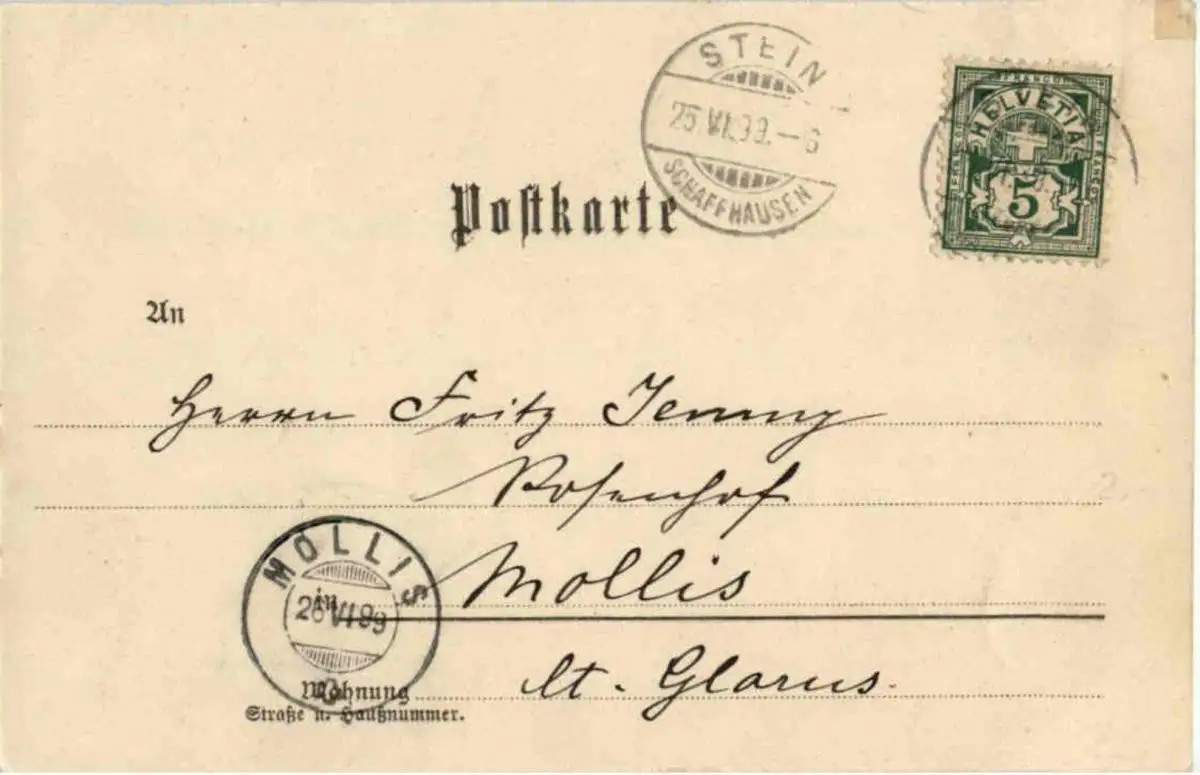 STEIN
25.VI.99.–6
SCHAFFHAUSEN
FRANCO
HELVETIA
FRANCO
FRANCO
5
Postkarte
An
Herrn Fritz Jenny
Rosenhof
MOLLIS
in
26 VI 99
Mollis
Wohnung
Straße u. Haußnummer.
Ct. Glarus.